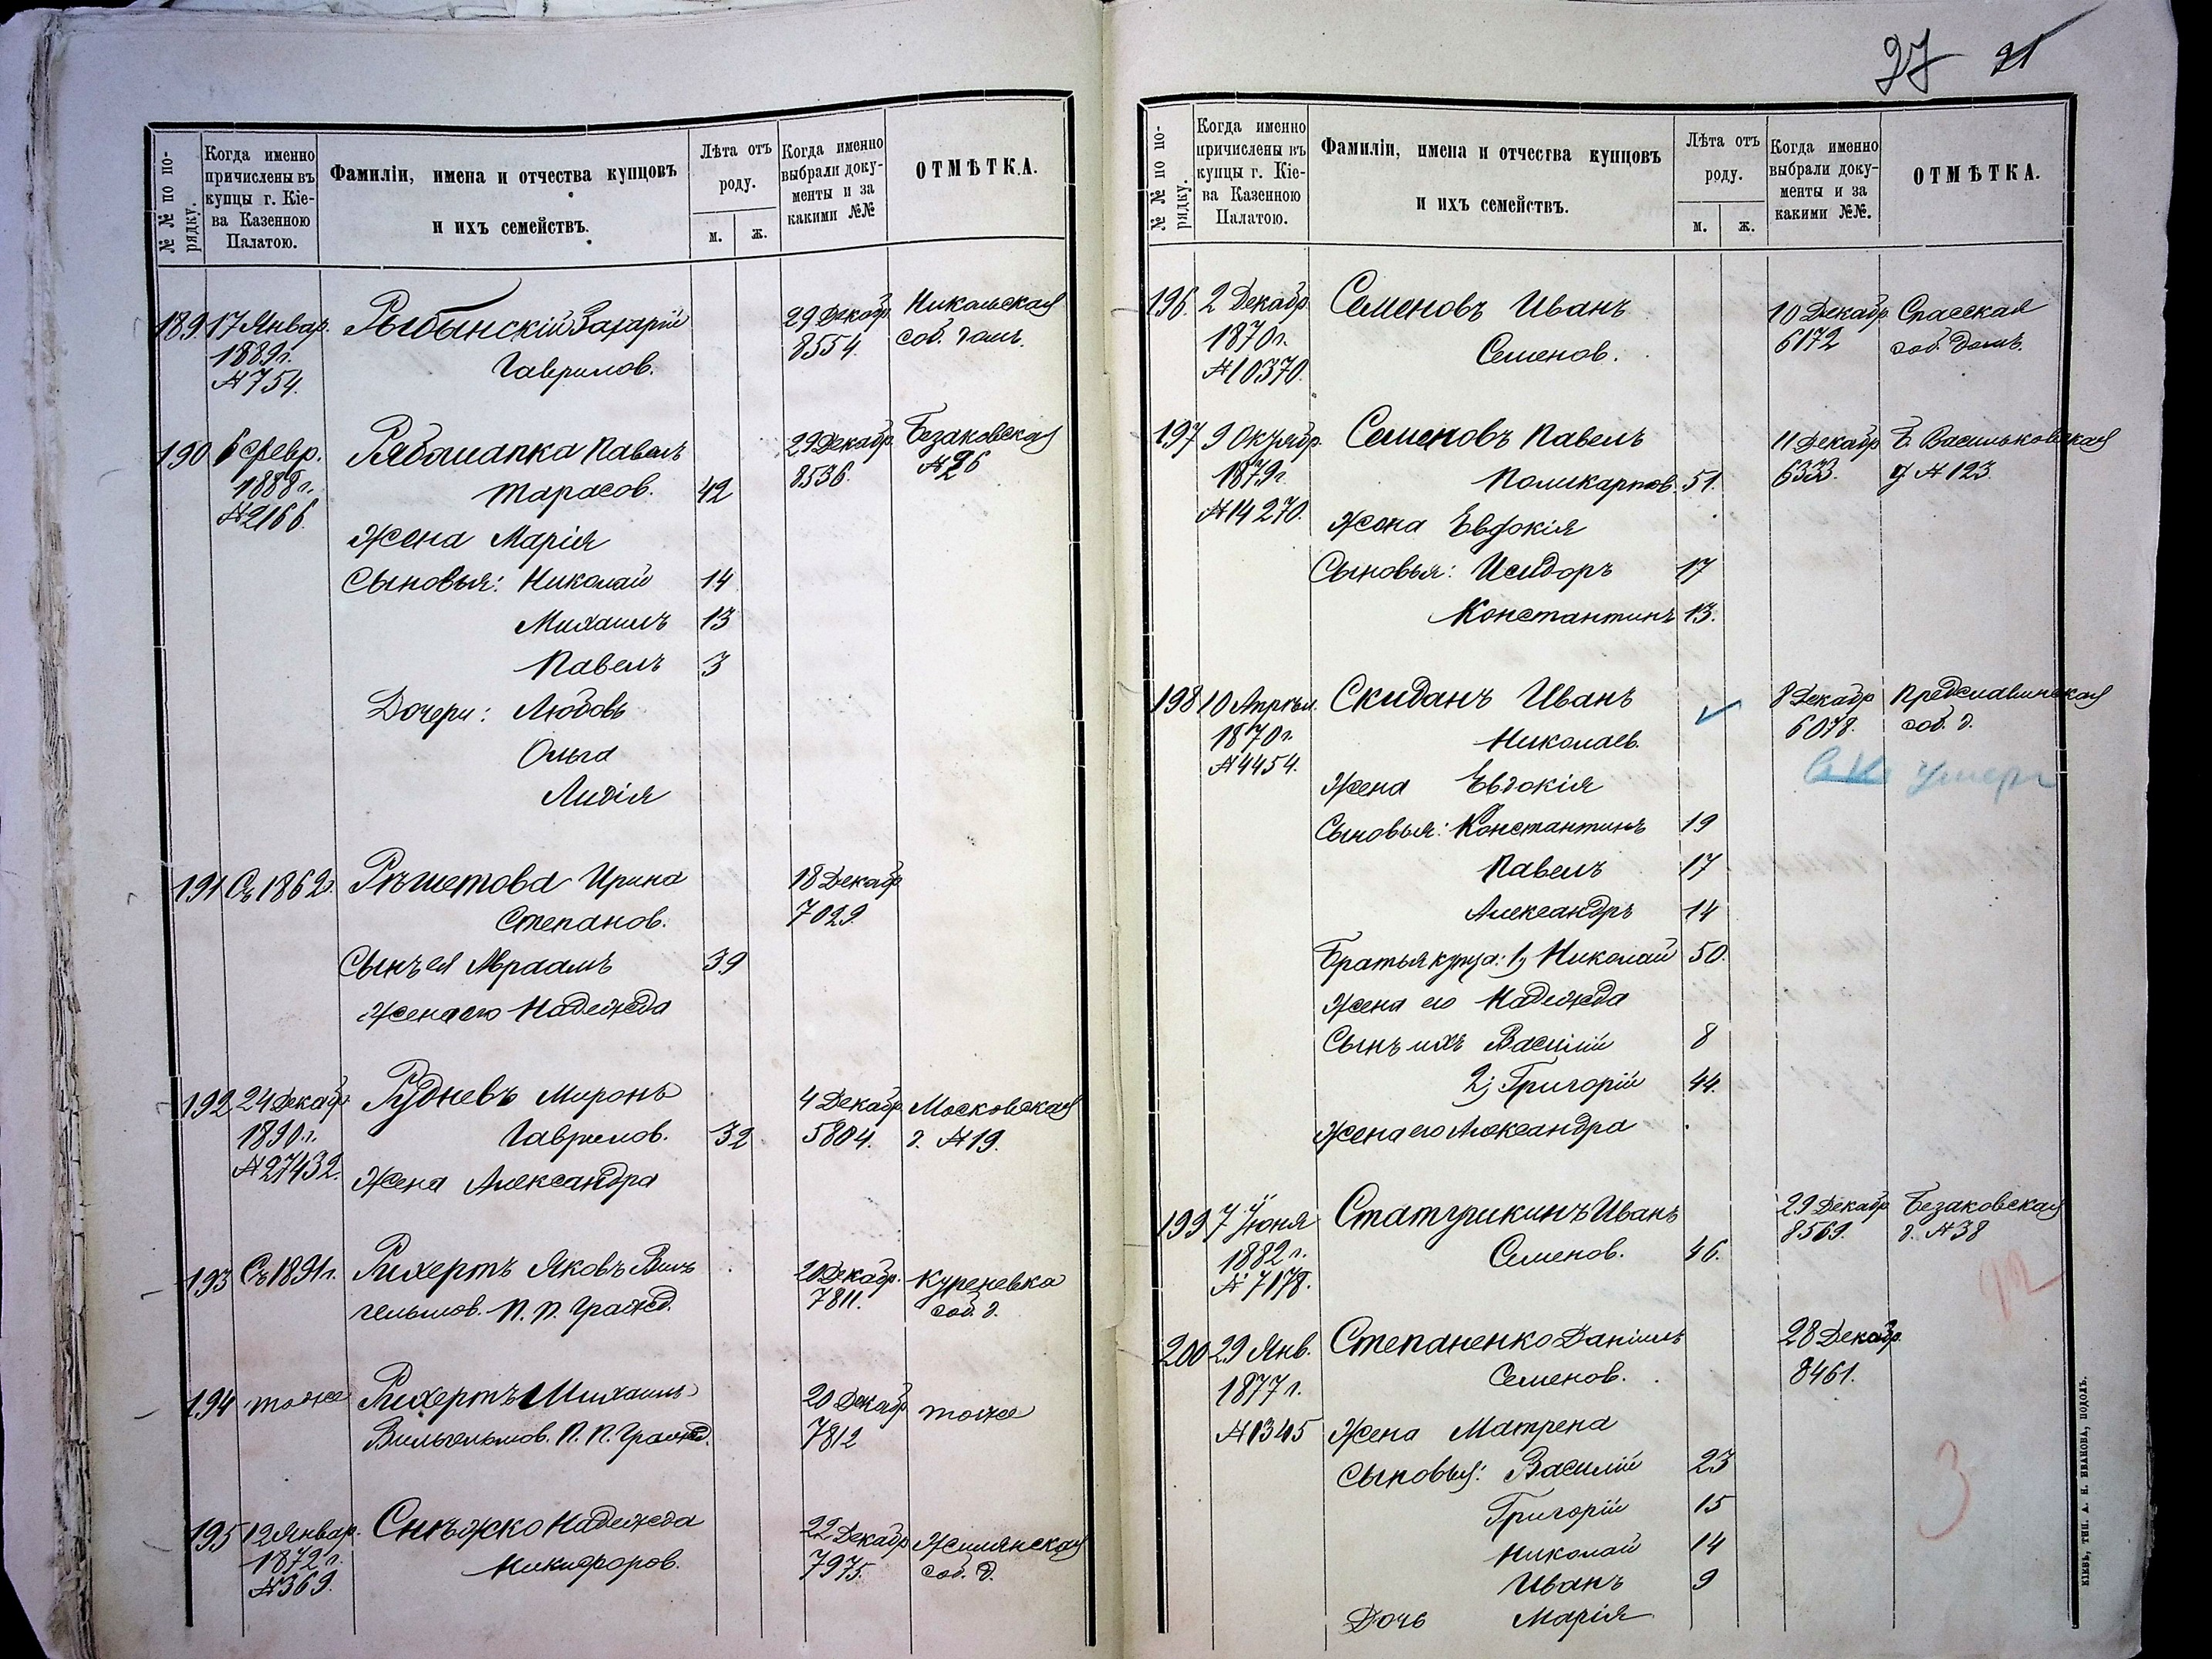 27 21
№№ по порядку.
Когда именно причислены въ купцы г. Кіева Казенною Палатою.
Фамиліи, имена и отчества купцовъ
и ихъ семействъ.
Лѣта отъ роду.
м. ж.
Когда именно выбрали документы и за какими №№
ОТМѢТКА.
189 17 Январ. Рыбынскій Захарій 29 Декабр. Никольская
1889 г. Гаврилов. 8554. соб. домъ.
№ 754.
190 6 Февр. Рябошапка Павелъ 29 Декабр. Безаковская
1888 г. Тарасов. 42 8536. № 26
№ 2166.
Жена Марія
Сыновья: Николай 14
Михаилъ 13
Павелъ 3
Дочери: Любовь
Ольга
Лидія
191 Съ 1862 г. Рѣшетова Ирина 18 Декабр
Степанов. 7029
Сынъ ея Авраамъ 39
Жена его Надежда
192 24 Декабр. Рудневъ Миронъ 4 Декабр. Московская
1890 г. Гаврилов. 32 5804. д. № 19.
№ 27432. Жена Александра
193 Съ 1891 г. Рихертъ Яковъ Виль 20 Декабр. Куреневка
гельмов. П. П. Гражд. 7811. соб. д.
194 тоже Рихертъ Михаилъ 20 Декабр тоже
Вильгельмов. П. П. Гражд. 7812
195 12 Январ. Снѣжко Надежда 22 Декабр Жилянская
1872 г. Никифоров. 7975. соб. д.
№ 369.
№№ по порядку.
Когда именно причислены въ купцы г. Кіева Казенною Палатою.
Фамиліи, имена и отчества купцовъ
и ихъ семействъ.
Лѣта отъ роду.
м. ж.
Когда именно выбрали документы и за какими №№.
ОТМѢТКА.
196. 2 Декабр. Семеновъ Иванъ 10 Декабр Спасская
1870 г. Семенов. 6172 соб. домъ.
№ 10370.
197 9 Октябр. Семеновъ Павелъ 11 Декабр Б. Васильковская
1879 г. Поликарпов. 51. 6333. д № 123.
№ 14270. Жена Евдокія
Сыновья: Исидоръ 17
Константинъ 13.
198 10 Апрѣл. Скиданъ Иванъ 8 Декабр Предславинская
1870 г. Николаев. 6078. соб. д.
№ 4454. Жена Евдокія умеръ
Сыновья: Константинъ 19
Павелъ 17
Александръ 14
Братья купца: 1, Николай 50.
Жена его Надежда
Сынъ ихъ Василій 8
2, Григорій 44.
Жена его Александра
199 7 Іюня Статушкинъ Иванъ 29 Декабр Безаковская
1882 г. Семенов. 46. 8569. д. № 38
№ 7178.
200 29 Янв. Степаненко Даніилъ 28 Декабр.
1877 г. Семенов. 8461.
№ 1345 Жена Матрена
Сыновья: Василій 23
Григорій 15
Николай 14
Иванъ 9
Дочь Марія
3
КІЕВЪ, ТИП. А. Н. ИВАНОВА, ПОДОЛЪ.